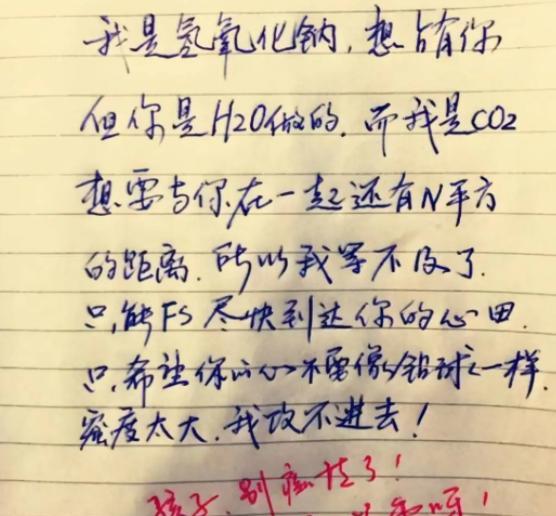 我是氢氧化钠，想占有你
但你是H2O做的，而我是CO2
想要与你在一起还有N平方
的距离，所以我等不及了，
只能FS尽快到达你的心田，
只希望你的心不要像铅球一样，
密度太大，我攻不进去！
孩子，别痴狂了！